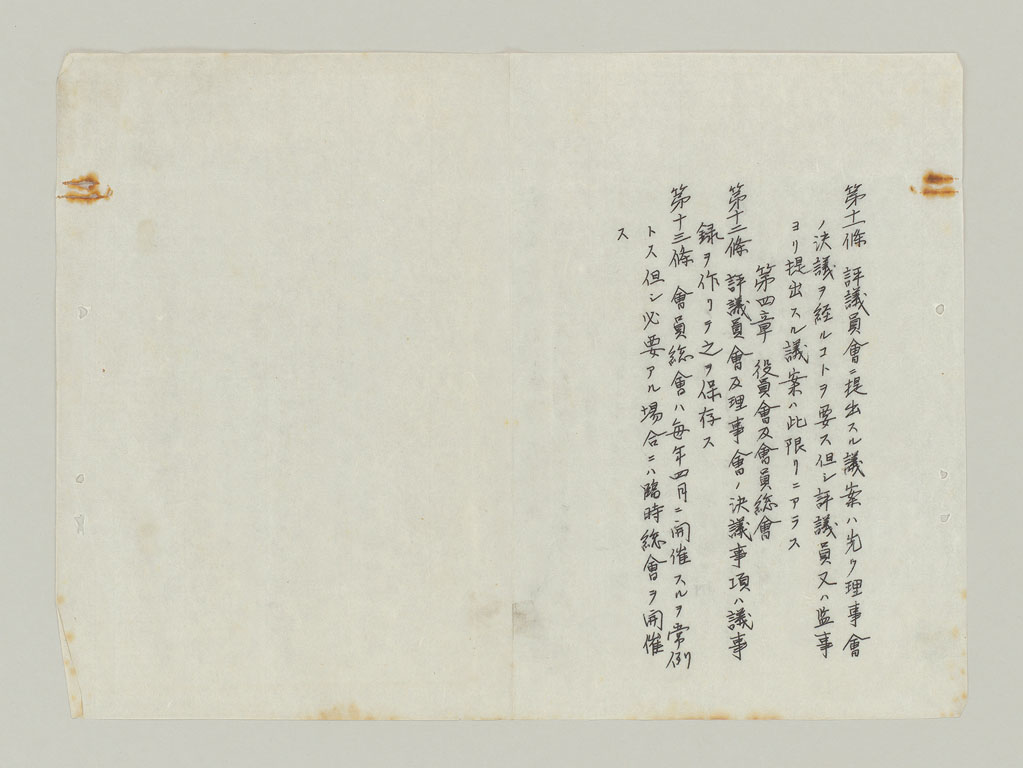 第十一條 評議員會ニ提出スル議案ハ先ツ理事會
ノ決議ヲ経ルコトヲ要ス但シ評議員又ハ監事
ヨリ提出スル議案ハ此限リニアラス
第四章 役員會及會員総會
第十二條 評議員會及理事會ノ決議事項ハ議事
録ヲ作リテ之ヲ保存ス
第十三條 會員総會ハ毎年四月ニ開催スルヲ常例
トス但シ必要アル場合ニハ臨時総會ヲ開催
ス